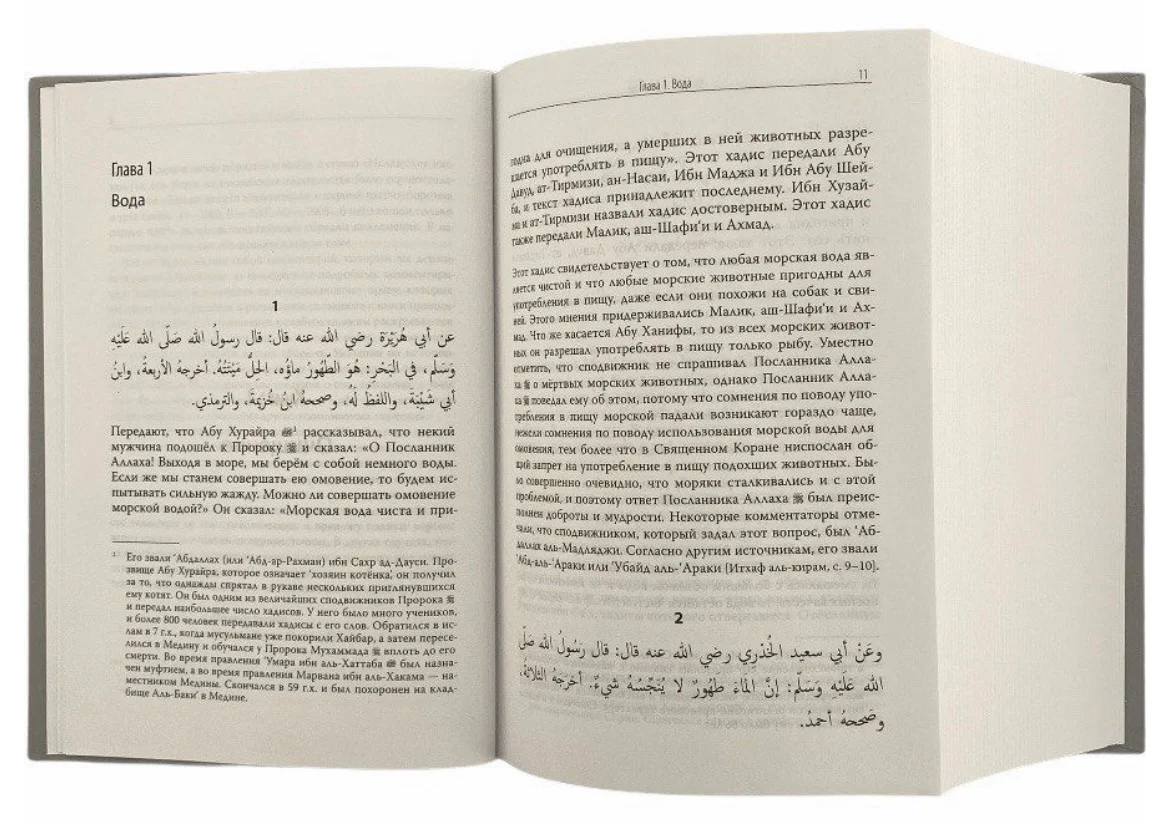 Глава 1
Вода
1
عن أبي هُرَيْرَة رضي الله عنه قال: قال رسولُ الله صَلَّى الله عَلَيْهِ
وَسَلَّم، في البَحْرِ: هُوَ الطَّهُورُ ماؤُه، الحِلُّ مَيْتَتُهُ. أخرجهُ الأربعةُ، وابنُ
أبي شَيْبَة، واللفظُ لَهُ، وصححهُ ابنُ خُزيمةَ، والترمذي.
Передают, что Абу Хурайра ﷺ¹ рассказывал, что некий
мужчина подошёл к Пророку ﷺ и сказал: «О Посланник
Аллаха! Выходя в море, мы берём с собой немного воды.
Если же мы станем совершать ею омовение, то будем ис-
пытывать сильную жажду. Можно ли совершать омовение
морской водой?» Он сказал: «Морская вода чиста и при-
¹ Его звали ‘Абдаллах (или ‘Абд-ар-Рахман) ибн Сахр ад-Дауси. Про-
звище Абу Хурайра, которое означает ‘хозяин котёнка’, он получил
за то, что однажды спрятал в рукаве нескольких приглянувшихся
ему котят. Он был одним из величайших сподвижников Пророка ﷺ
и передал наибольшее число хадисов. У него было много учеников,
и более 800 человек передавали хадисы с его слов. Обратился в ис-
лам в 7 г.х., когда мусульмане уже покорили Хайбар, а затем пересе-
лился в Медину и обучался у Пророка Мухаммада ﷺ вплоть до его
смерти. Во время правления ‘Умара ибн аль-Хаттаба был назна-
чен муфтием, а во время правления Марвана ибн аль-Хакама — на-
местником Медины. Скончался в 59 г.х. и был похоронен на клад-
бище Аль-Баки‘ в Медине.
Глава 1. Вода 11
годна для очищения, а умерших в ней животных разре-
шается употреблять в пищу». Этот хадис передали Абу
Давуд, ат-Тирмизи, ан-Насаи, Ибн Маджа и Ибн Абу Шей-
ба, и текст хадиса принадлежит последнему. Ибн Хузай-
ма и ат-Тирмизи назвали хадис достоверным. Этот хадис
также передали Малик, аш-Шафи‘и и Ахмад.
Этот хадис свидетельствует о том, что любая морская вода яв-
ляется чистой и что любые морские животные пригодны для
употребления в пищу, даже если они похожи на собак и сви-
ней. Этого мнения придерживались Малик, аш-Шафи‘и и Ах-
мад. Что же касается Абу Ханифы, то из всех морских живот-
ных он разрешал употреблять в пищу только рыбу. Уместно
отметить, что сподвижник не спрашивал Посланника Алла-
ха ﷺ о мёртвых морских животных, однако Посланник Алла-
ха ﷺ поведал ему об этом, потому что сомнения по поводу упо-
требления в пищу морской падали возникают гораздо чаще,
нежели сомнения по поводу использования морской воды для
омовения, тем более что в Священном Коране ниспослан об-
щий запрет на употребление в пищу подохших животных. Бы-
ло совершенно очевидно, что моряки сталкивались и с этой
проблемой, и поэтому ответ Посланника Аллаха ﷺ был преис-
полнен доброты и мудрости. Некоторые комментаторы отме-
чали, что сподвижником, который задал этот вопрос, был ‘Аб-
даллах аль-Мадляджи. Согласно другим источникам, его звали
‘Абд-аль-‘Араки или ‘Убайд аль-‘Араки [Итхаф аль-кирам, с. 9–10].
2
وعَنْ أبي سعيد الخُدْرِي رضي الله عنه قال: قال رَسُولُ الله صَلَّى
الله عَلَيْهِ وَسَلَّم: إنَّ المْاءَ طَهُورٌ لا يُنَجِّسُهُ شيءٌ. أخرجَهُ الثلاثةُ،
وصَححهُ أحمدُ.